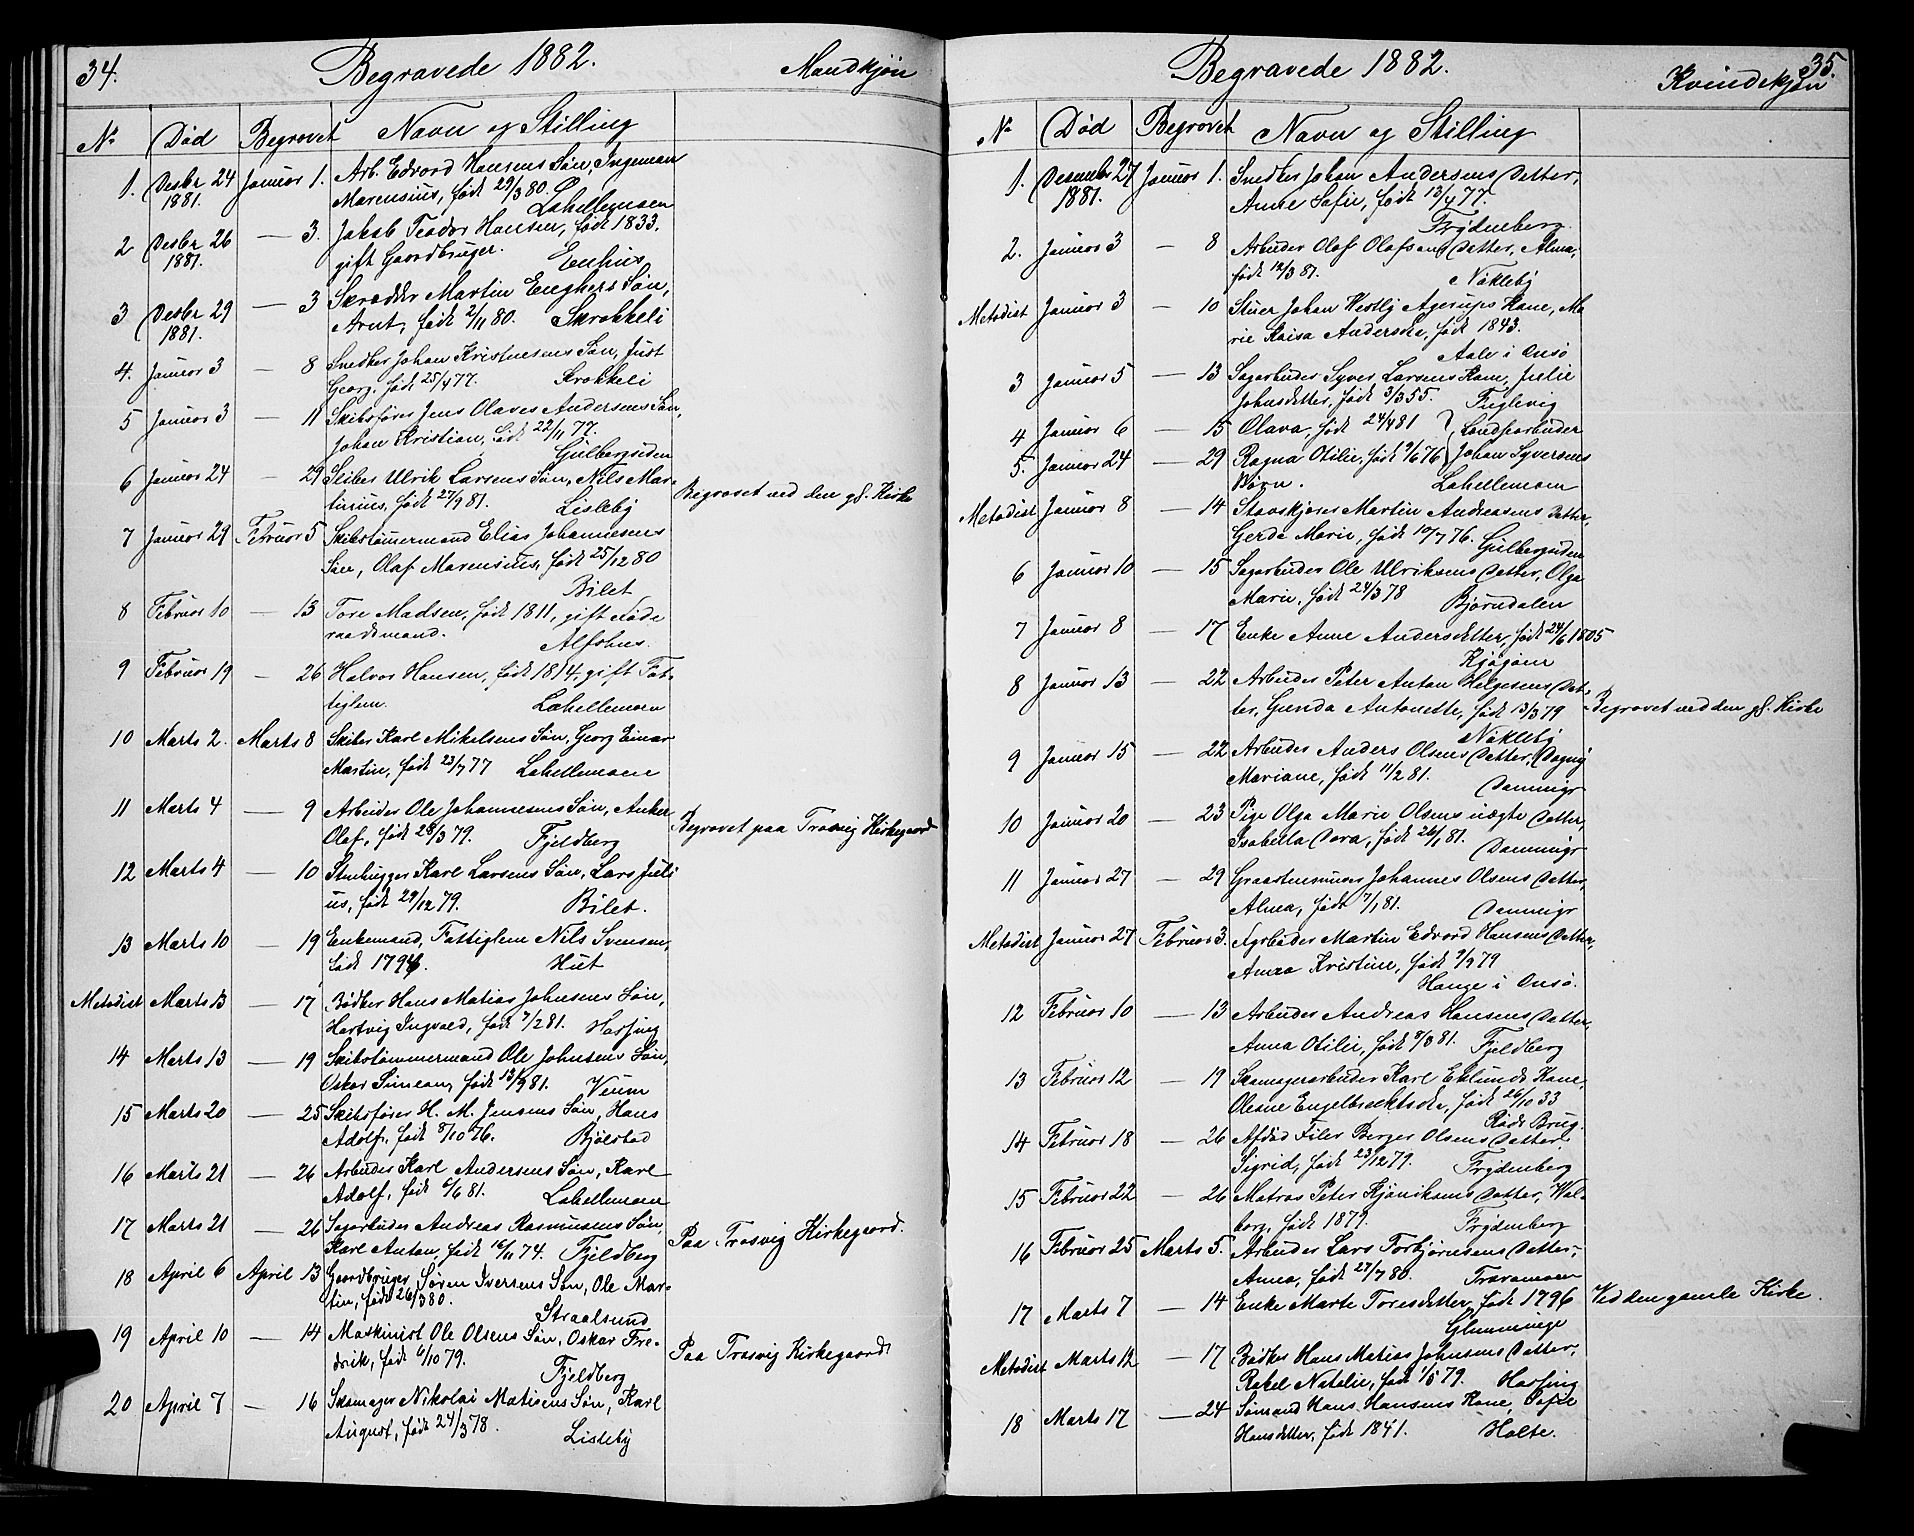 34.
Begravede 1882.
Mandkjøn
No Død Begravet Navn og Stilling
1. Desbr 24 1881. Januar 1. Arb. Edvard Hansens Søn, Ingeman
Marensius, født 29/3 80. Lahellemoen
2 Desbr 26 1881. — 3. Jakob Teodor Hansen, født 1833.
gift Gaardbruger. Enhus
3 Desbr 29 1881. — 3 Skrædder Martin Enghers Søn,
Arnt, født 2/11 80. Skrokkeli
4. Januar 3 — 8 Snedker Johan Kristnesens Søn, Just
Georg, født 25/4 77. Krokkeli
5 Januar 3 — 11 Skibsfører Jens Olaves Andersens Søn,
Johan Kristian, født 22/11 77.
Gulbergsiden
6 Januar 24 — 29 Sliber Ulrik Larsens Søn, Nils Mar-
tinius, født 27/9 81. Lisleby Begravet ved den gl. Kirke
7 Januar 29 Februar 5 Skibstømmermand Elias Johannesens
Søn, Olaf Marensius, født 25/12 80
Bilet
8 Februar 10 — 13 Tore Madsen, født 1811, gift Føde
raadsmand. Alfshus.
9 Februar 19 — 26 Halvor Hansen, født 1814, gift Fat-
tiglem. Lahellemoen
10 Marts 2. Marts 8 Skiber Karl Mikelsens Søn, Georg Einar
Martin, født 23/7 77 Lahellemoen
11 Marts 4 — 9 Arbeider Ole Johannesens Søn, Anker
Olaf, født 28/3 79. Fjeldberg Begravet paa Trosvig Kirkegaard
12 Marts 4 — 10 Stenhugger Karl Larsens Søn, Lars Juli
us, født 29/12 79. Bilet.
13 Marts 10 — 19 Enkemand, Fattiglem Nils Svensen,
født 1796. Hut
Metodist Marts 13 — 17 Bødker Hans Matias Johnsens Søn,
Hartvig Ingvald, født 7/2 81. Hassing
14 Marts 13 — 19 Skibstømmermand Ole Johnsens Søn,
Oskar Simean, født 13/9 81. Veum
15 Marts 20 — 25 Skibsfører H. M. Jensens Søn, Hans
Adolf, født 8/10 76. Bjølstad
16 Marts 21 — 26 Arbeider Karl Andersens Søn, Karl
Adolf, født 6/6 81. Lahellemoen
17 Marts 21 — 26 Sagarbeider Andreas Rasmussens Søn,
Karl Anton, født 16/11 74. Fjeldberg Paa Trosvig Kirkegaard.
18 April 6 April 13 Gaardbruger Søren Iversens Søn, Ole Mar-
tin, født 26/3 80.
Straalsund
19 April 10 — 14 Maskinist Ole Olsens Søn, Oskar Fre-
drik, født 6/10 79. Paa Trosvig Kirkegaard
Fjeldberg
20 April 7 — 16 Skomager Nikolai Matisens Søn, Karl
August, født 24/3 78.
Lisleby
35.
Begravede 1882.
Kvindekjøn
No Død Begravet Navn og Stilling
1. Desember 27 1881. Januar 1. Snedker Johan Andersens Datter,
Anne Sofie, født 13/4 77.
Frydenberg.
2. Januar 3 — 8 Arbeider Olaf Olafsens Datter, Alma,
født 12/3 81. Nøkleby
Metodist Januar 3 — 10 Stuer Johan Vestly Agerups Kone, Ma
rie Kaisa Andersdr, født 1843.
Aale i Onsø
3 Januar 5 — 13 Sagarbeider Syver Larsens Kone, Julie
Johnsdetter, født 3/3 55. Fuglevig
4 Januar 6 — 15 Olava, født 24/4 81 } Landsarbeider
5. Januar 24 — 29 Ragna Otilie, født 9/6 76 } Johan Syversens
Børn. Lahellemoen
Metodist Januar 8 — 14 Stavskjører Martin Andreasens Datter,
Gerda Marie, født 10/7 76. Gulbergsiden
6 Januar 10 — 15 Sagarbeider Ole Ulriksens Datter, Olga
Marie, født 24/3 78 Bjørndalen
7 Januar 8 — 17 Enke Anne Andersdetter, født 24/6 1805
Kjøgøen
8 Januar 13 — 22 Arbeider Peter Anton Helgesens Dat-
ter, Gunda Antonette, født 13/3 79 Begravet ved den gl. Kirke
Nøkleby
9 Januar 15 — 22 Arbeider Anders Olsens Datter, Dagny
Mariane, født 11/2 81.
Dammigr
10 Januar 20 — 23 Pige Olga Marie Olsens uægte Datter,
Isabella Dora, født 26/1 81.
Dammigr
11 Januar 27 — 29 Graastensmurer Johannes Olsens Datter,
Alma, født 7/1 81. Dammigr
Metodist Januar 27 Februar 3. Agrbeider Martin Edvard Hansens Datter,
Anna Kristine, født 7/9 79
Hauge i Onsø.
12 Februar 10 — 13 Arbeider Andreas Hansens Datter,
Anna Otilie, født 8/3 81. Fjeldberg
13 Februar 12 — 19 Skomagerarbeider Karl Eklunds Kone,
Olesne Engelbrecktsdr, født 26/10 33
Røds Brug.
14 Februar 18 — 26 Afdød Filer Berger Olsens Datter,
Sigrid, født 23/12 79. Frydenberg
15 Februar 22 — 26 Matros Peter Kjøniksens Datter, Val-
borg, født 1879. Frydenberg
16 Februar 25 Marts 5. Arbeider Lars Torbjørnsens Datter,
Anna, født 27/7 80. Traramoen
17 Marts 7 — 14 Enke Marte Toresdetter, født 1796 Ved den gamle Kirke.
Glemminge
Metodist Marts 12 — 17 Bødker Hans Matias Johnsens Datter,
Rakel Natalie, født 1/5 79. Hassing
18 Marts 17 — 24 Sømand Hans Hansens Kone, Sofie
Hansdetter, født 1841. Holte.